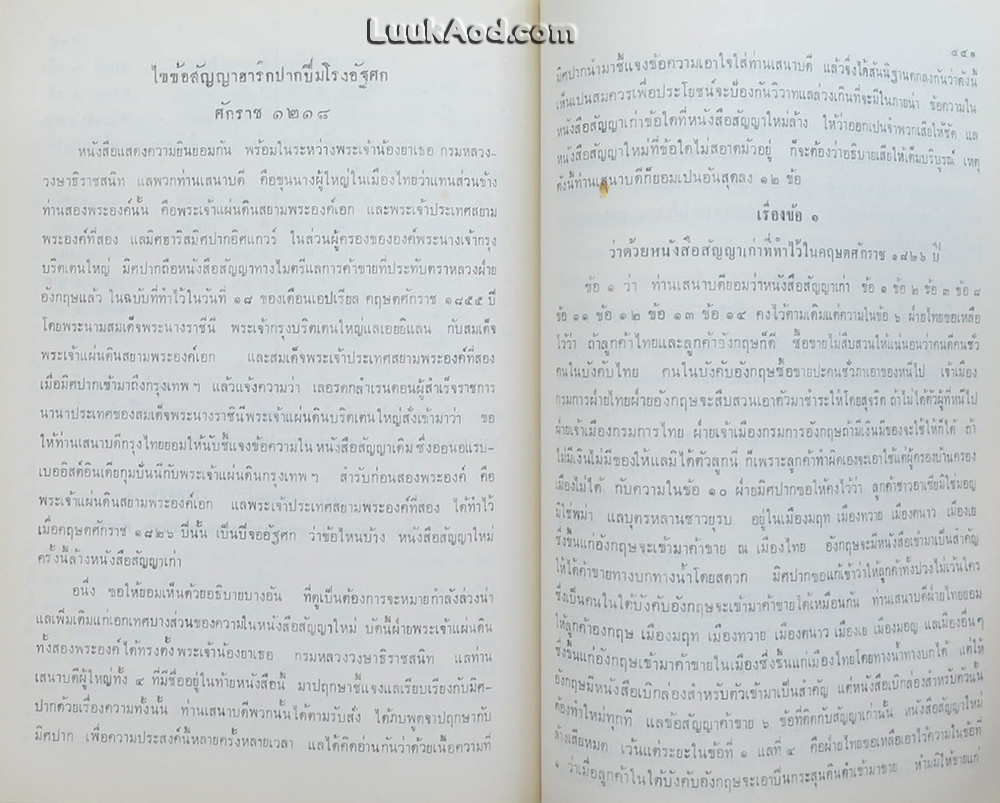 LuukAod.com
ไขข้อสัญญาฮารีกปากปีมโรงอัฐศก
ศักราช ๑๒๑๘
หนังสือแสดงความยินยอมกัน พร้อมในระหว่างพระเจ้าน้องยาเธอ กรมหลวง-
วงษาธิราชสนิท แลพวกท่านเสนาบดี คือขุนนางผู้ใหญ่ในเมืองไทยว่าแทนส่วนข้าง
ท่านสองพระองค์นั้น คือพระเจ้าแผ่นดินสยามพระองค์เอก และพระเจ้าประเทศสยาม
พระองค์ที่สอง แลมิศฮาริสมิศปากอิศแกวร์ ในส่วนผู้ครองขององค์พระนางเจ้ากรุง
บริตเตนใหญ่ มิศปากถือหนังสือสัญญาทางไมตรีแลการค้าขายที่ประทับตราหลวงฝ่าย
อังกฤษแล้ว ในฉบับที่ทำไว้ในวันที่ ๑๘ ของเดือนเอปเรียล คฤษตศักราช ๑๘๕๕ ปี
โดยพระนามสมเด็จพระนางราชินี พระเจ้ากรุงบริตเตนใหญ่แลเอยยิแลน กับสมเด็จ
พระเจ้าแผ่นดินสยามพระองค์เอก และสมเด็จพระเจ้าประเทศสยามพระองค์ที่สอง
เมื่อมิศปากเข้ามาถึงกรุงเทพฯ แล้วแจ้งความว่า เลอรดกลำเรนดอนผู้สำเร็จราชการ
นานาประเทศของสมเด็จพระนางราชินีพระเจ้าแผ่นดินบริตเตนใหญ่สั่งเข้ามาว่า ขอ
ให้ท่านเสนาบดีกรุงไทยยอมให้นับชี้แจงข้อความใน หนังสือสัญญาเดิม ซึ่งออนอแรบ-
เบออิสต์อินเดียกุมปันนีกับพระเจ้าแผ่นดินกรุงเทพฯ สำรับก่อนสองพระองค์ คือ
พระเจ้าแผ่นดินสยามพระองค์เอก แลพระเจ้าประเทศสยามพระองค์ที่สอง ได้ทำไว้
เมื่อคฤษตศักราช ๑๘๒๖ ปีนั้น เป็นปีจออัฐศก ว่าข้อไหนบ้าง หนังสือสัญญาใหม่
ครั้งนี้ล้างหนังสือสัญญาเก่า
อนึ่ง ขอให้ยอมเห็นด้วยอธิบายบางอัน ที่ดูเป็นต้องการจะหมายกำลังล่วงน่า
แลเพิ่มเติมแก่เอกเทศบางส่วนของความในหนังสือสัญญาใหม่ บัดนี้ฝ่ายพระเจ้าแผ่นดิน
ทั้งสองพระองค์ ได้ทรงตั้งพระเจ้าน้องยาเธอ กรมหลวงวงษาธิราชสนิท แลท่าน
เสนาบดีผู้ใหญ่ทั้ง ๔ ที่มีชื่ออยู่ในท้ายหนังสือนี้ มาปฤกษาชี้แจงแลเรียบเรียงกับมิศ-
ปากด้วยเรื่องความทั้งนั้น ท่านเสนาบดีพวกนั้นได้ตามรับสั่ง ได้ภบพูดจาปฤกษากับ
มิศปาก เพื่อความประสงค์นี้หลายครั้งหลายเวลา แลได้คิดอ่านกันว่าด้วยเนื้อความที่
๔๕๑
มิศปากนำมาชี้แจงข้อความเอาใจใส่ท่านเสนาบดี แล้วจึ่งได้สันนิฐานตกลงกันว่าดังนี้
เห็นเปนสมควรเพื่อประโยชน์จะป้องกันวิวาทแลล่วงเกินที่จะมีในภายน่า ข้อความใน
หนังสือสัญญาเก่าข้อใดที่หนังสือใหม่ล้าง ให้ว่าออกเปนจำพวกเสียให้ชัด แล
หนังสือสัญญาใหม่ที่ข้อใดไม่สอาดมัวอยู่ ก็จะต้องว่าอธิบายเสียให้เต็มบริบูรณ์ เหตุ
ดังนี้ท่านเสนาบดีก็ยอมเปนอันสุดลง ๑๒ ข้อ
เรื่องข้อ ๑
ว่าด้วยหนังสือสัญญาเก่าที่ทำไว้ในคฤษตศักราช ๑๘๒๖ ปี
ข้อ ๑ ว่า ท่านเสนาบดียอมว่าหนังสือสัญญาเก่า ข้อ ๑ ข้อ ๒ ข้อ ๓ ข้อ ๘
ข้อ ๑๑ ข้อ ๑๒ ข้อ ๑๓ ข้อ ๑๔ คงไว้ตามเดิมแต่ความในข้อ ๖ ฝ่ายไทยขอเหลือ
ไว้ว่า ถ้าลูกค้าไทยและลูกค้าอังกฤษก็ดี ซื้อขายไม่สืบสวนให้แน่นอนว่าคนดีคนชั่ว
คนในบังคับไทย คนในบังคับอังกฤษซื้อขายปะคนชั่วภาเอาของหนีไป เจ้าเมือง
กรมการฝ่ายไทยฝ่ายอังกฤษจะสืบสวนเอาตัวมาชำระให้โดยสุจริต ถ้าไม่ได้ตัวผู้ที่หนีไป
ฝ่ายเจ้าเมืองกรมการไทย ฝ่ายเจ้าเมืองกรมการอังกฤษถ้ามีเงินมีของจะใช้ให้ก็ได้ ถ้า
ไม่มีเงินไม่มีของให้แลมิได้ตัวลูกนี่ ก็เพราะลูกค้าทำผิดเองจะเอาใช้แต่ผู้ครองบ้านครอง
เมืองไม่ได้ กับความในข้อ ๑๐ ฝ่ายมิศปากขอให้คงไว้ว่า ลูกค้าชาวอาเซียมิใช่มอญ
มิใช่พม่า แลบุตรหลานชาวยุรบ อยู่ในเมืองมฤท เมืองทวาย เมืองตนาว เมืองเย
ซึ่งขึ้นแก่อังกฤษจะเข้ามาค้าขาย ณ เมืองไทย อังกฤษจะมีหนังสือเข้ามาเป็นสำคัญ
ให้ได้ค้าขายทางบกทางน้ำโดยสดวก มิศปากขอแก้เข้าว่าให้ลูกค้าทั้งปวงไม่เว้นใคร
ซึ่งเป็นคนในใต้บังคับอังกฤษจะเข้ามาค้าขายได้เหมือนกัน ท่านเสนาบดีฝ่ายไทยยอม
ให้ลูกค้าอังกฤษ เมืองมฤท เมืองทวาย เมืองตนาว เมืองเย เมืองมอญ แลเมืองอื่นๆ
ซึ่งขึ้นแก่อังกฤษเข้ามาค้าขายในเมืองซึ่งขึ้นแก่เมืองไทยโดยทางน้ำทางบกได้ แต่ให้
อังกฤษมีหนังสือเบิกล่องสำหรับตัวเข้ามาเป็นสำคัญ แต่หนังสือเบิกล่องสำหรับตัวนั้น
ต้องทำใหม่ทุกที แลข้อสัญญาค้าขาย ๖ ข้อที่ติดกับสัญญาเก่านั้น หนังสือสัญญาใหม่
ล้างเสียหมด เว้นแต่ระยะในข้อที่ ๑ แลที่ ๔ คือฝ่ายไทยขอเหลือเอาไว้ความในข้อที่
๑ ว่าเมื่อลูกค้าในใต้บังคับอังกฤษจะเอาปืนกระสุนดินดำเข้ามาขาย ห้ามมิให้ขายแก่